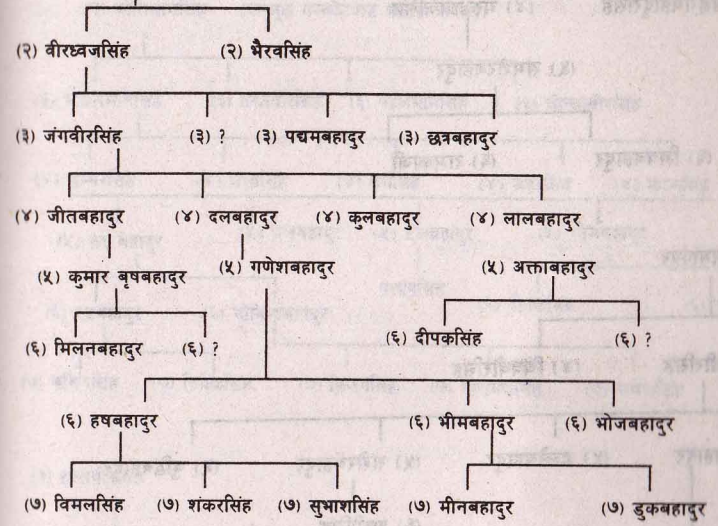 (२) वीरध्वजसिंह (२) भैरवसिंह
(३) जंगवीरसिंह (३) ? (३) पद्यमबहादुर (३) छत्रबहादुर
(४) जीतबहादुर (४) दलबहादुर (४) कुलबहादुर (४) लालबहादुर
(५) कुमार बृषबहादुर (५) गणेशबहादुर (५) अक्ताबहादुर
(६) मिलनबहादुर (६) ? (६) दीपकसिंह (६) ?
(६) हषबहादुर (६) भीमबहादुर (६) भोजबहादुर
(७) विमलसिंह (७) शंकरसिंह (७) सुभाशसिंह (७) मीनबहादुर (७) डुकबहादुर